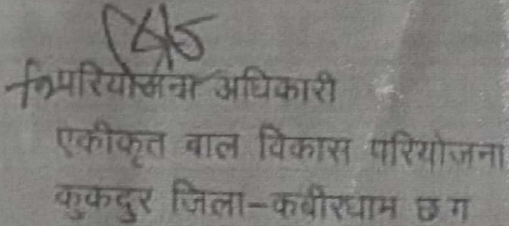 परियोजना अधिकारी
एकीकृत बाल विकास परियोजना
कुकदुर जिला-कबीरधाम छ ग